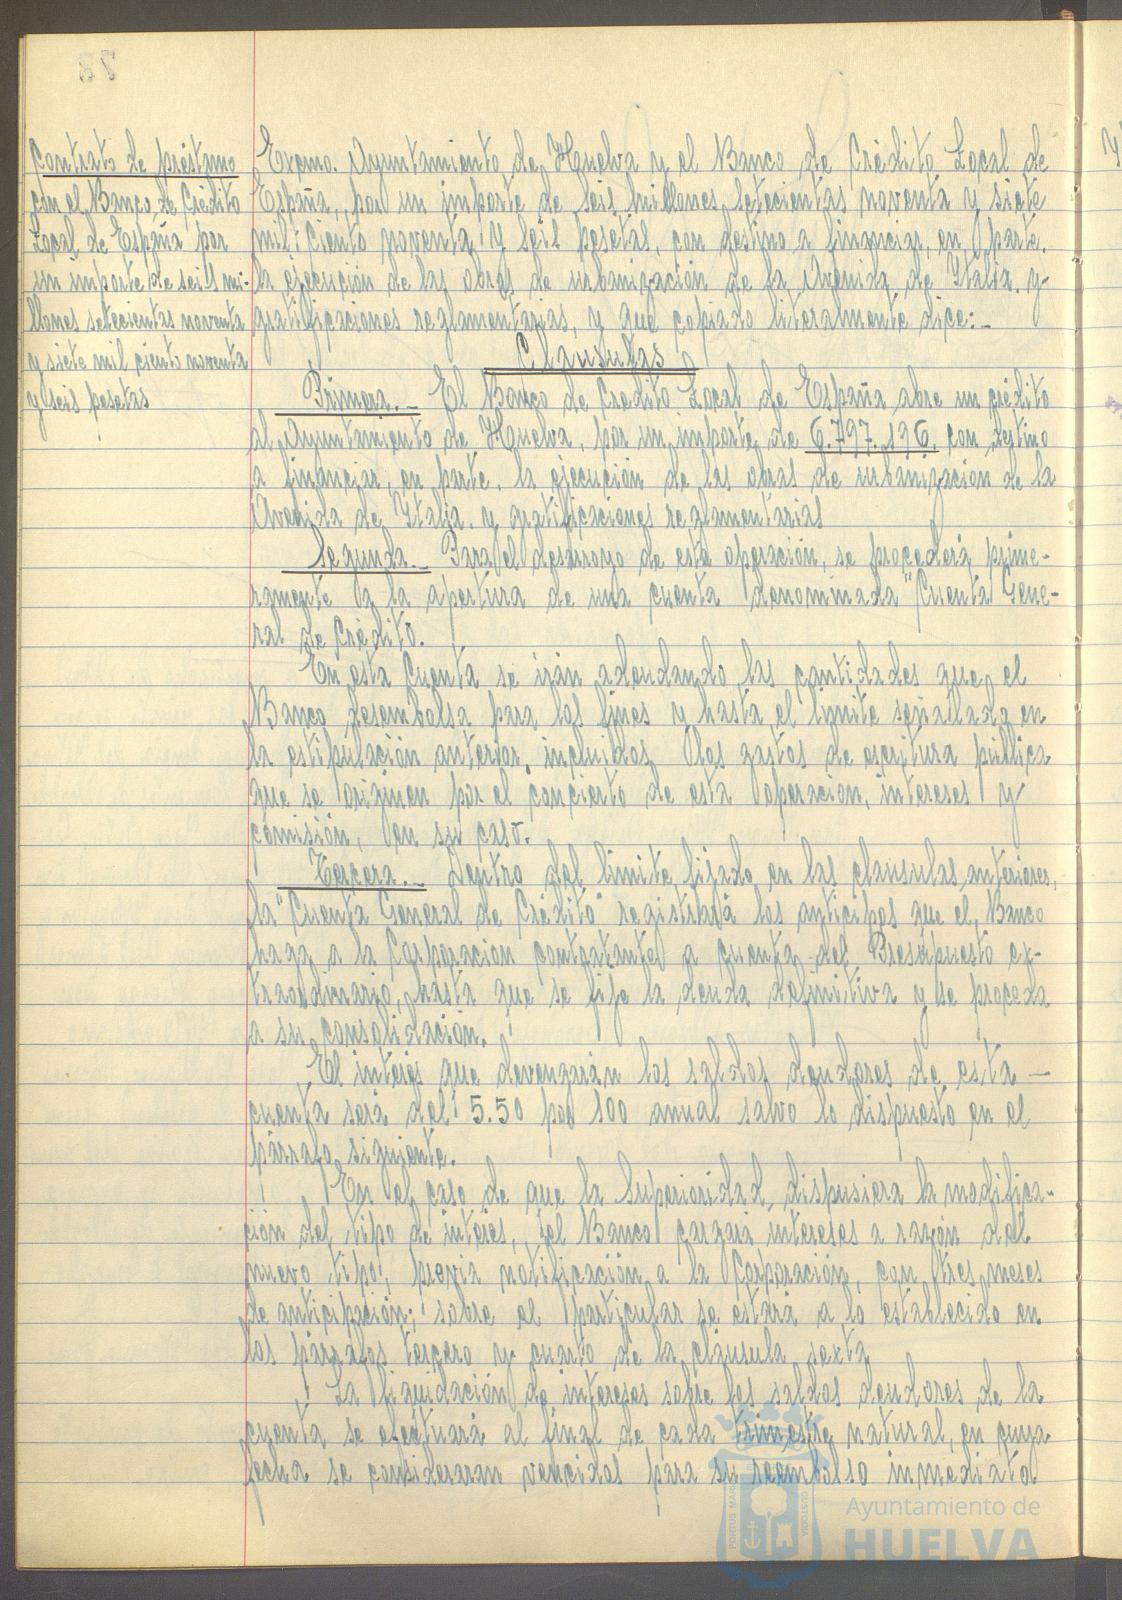 Contrato de préstamo
con el Banco de Crédito
Local de España por
un importe de seis mi-
llones setecientas noventa
y siete mil ciento noventa
y seis pesetas
Excmo. Ayuntamiento de Huelva y el Banco de Crédito Local de
España, por un importe de seis millones setecientas noventa y siete
mil ciento noventa y seis pesetas, con destino a financiar, en parte,
la ejecución de las obras de urbanización de la Avenida de Italia y
gratificaciones reglamentarias, y que copiado literalmente dice:-
Clausulas
Primera.- El Banco de Crédito Local de España abre un crédito
al Ayuntamiento de Huelva, por un importe de 6.797.196, con destino
a financiar, en parte, la ejecución de las obras de urbanización de la
Avenida de Italia, y gratificaciones reglamentarias
Segunda.- Para el desarroyo de esta operación, se procederá prime-
ramente a la apertura de una cuenta denominada "Cuenta Gene-
ral de Crédito.
En esta Cuenta se irán adeudando las cantidades que el
Banco desembolsa para los fines y hasta el límite señallado en
la estipulación anterior, incluidos los gastos de escritura pública
que se originen por el concierto de esta operación, intereses y
comisión, en su caso.
Tercera.- Dentro del límite fijado en las clausulas anteriores,
la "Cuenta General de Crédito" registrará los anticipos que el Banco
haga a la Corporación contratante a cuenta del Presupuesto ex-
traordinario, hasta que se fije la deuda definitiva y se proceda
a su consolidación.
El interés que devengarán los saldos deudores de esta -
cuenta será del 5.50 por 100 anual salvo lo dispuesto en el
párrafo siguiente.
En el caso de que la Superioridad dispusiera la modifica-
ción del tipo de interés, el Banco cargará intereses a razón del
nuevo tipo, previa notificación a la Corporación, con tres meses
de anticipación; sobre el particular se estará a lo establecido en
los párrafos tercero y cuarto de la cláusula sexta
La liquidación de intereses sobre los saldos deudores de la
cuenta se efectuará al final de cada trimestre natural, en cuya
fecha se consideraran vencidos para su reembolso inmediato.
PORTUS MARIS CUSTODIA
Ayuntamiento de
HUELVA